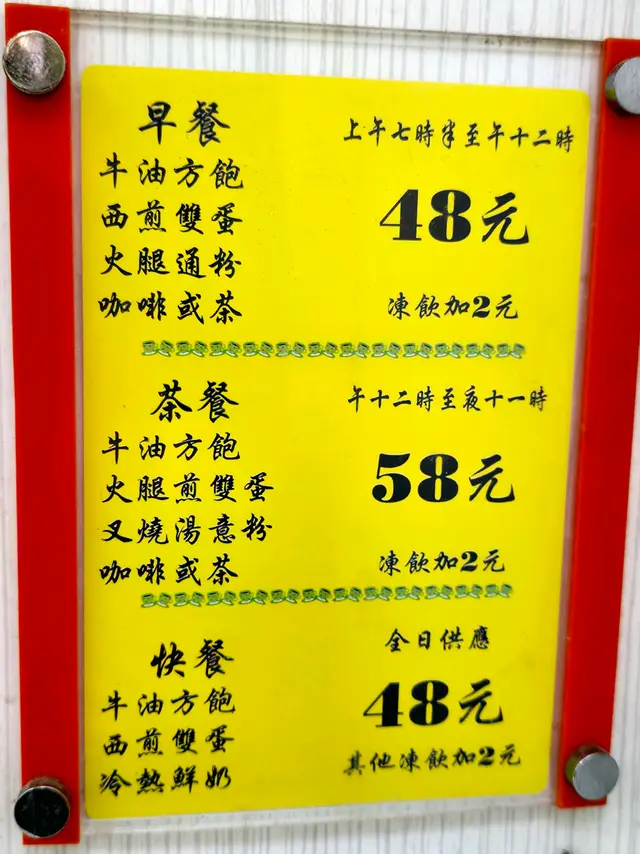 早餐
上午七時半至午十二時
牛油方飽
西煎雙蛋
48元
火腿通粉
咖啡或茶
凍飲加2元
茶餐
午十二時至夜十一時
牛油方飽
火腿煎雙蛋
58元
叉燒湯意粉
咖啡或茶
凍飲加2元
快餐
全日供應
牛油方飽
48元
西煎雙蛋
其他凍飲加2元
冷熱鮮奶